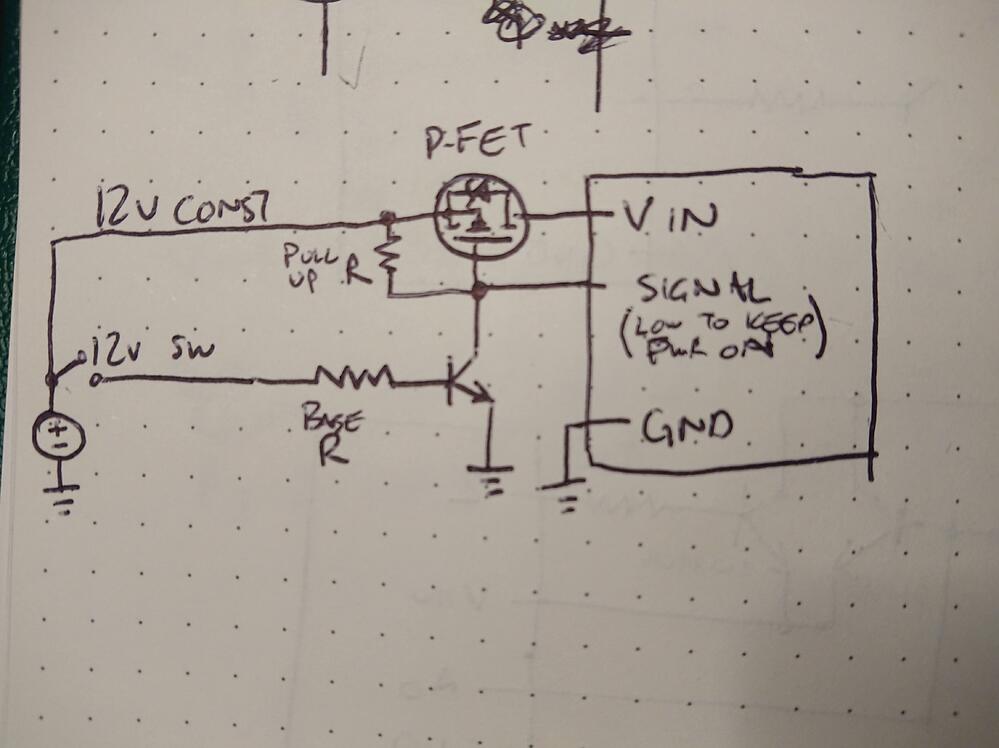 P-FET
12V CONST
V IN
PULL
UP R
SIGNAL
(LOW TO KEEP
PWR ON)
12V SW
BASE
R
GND